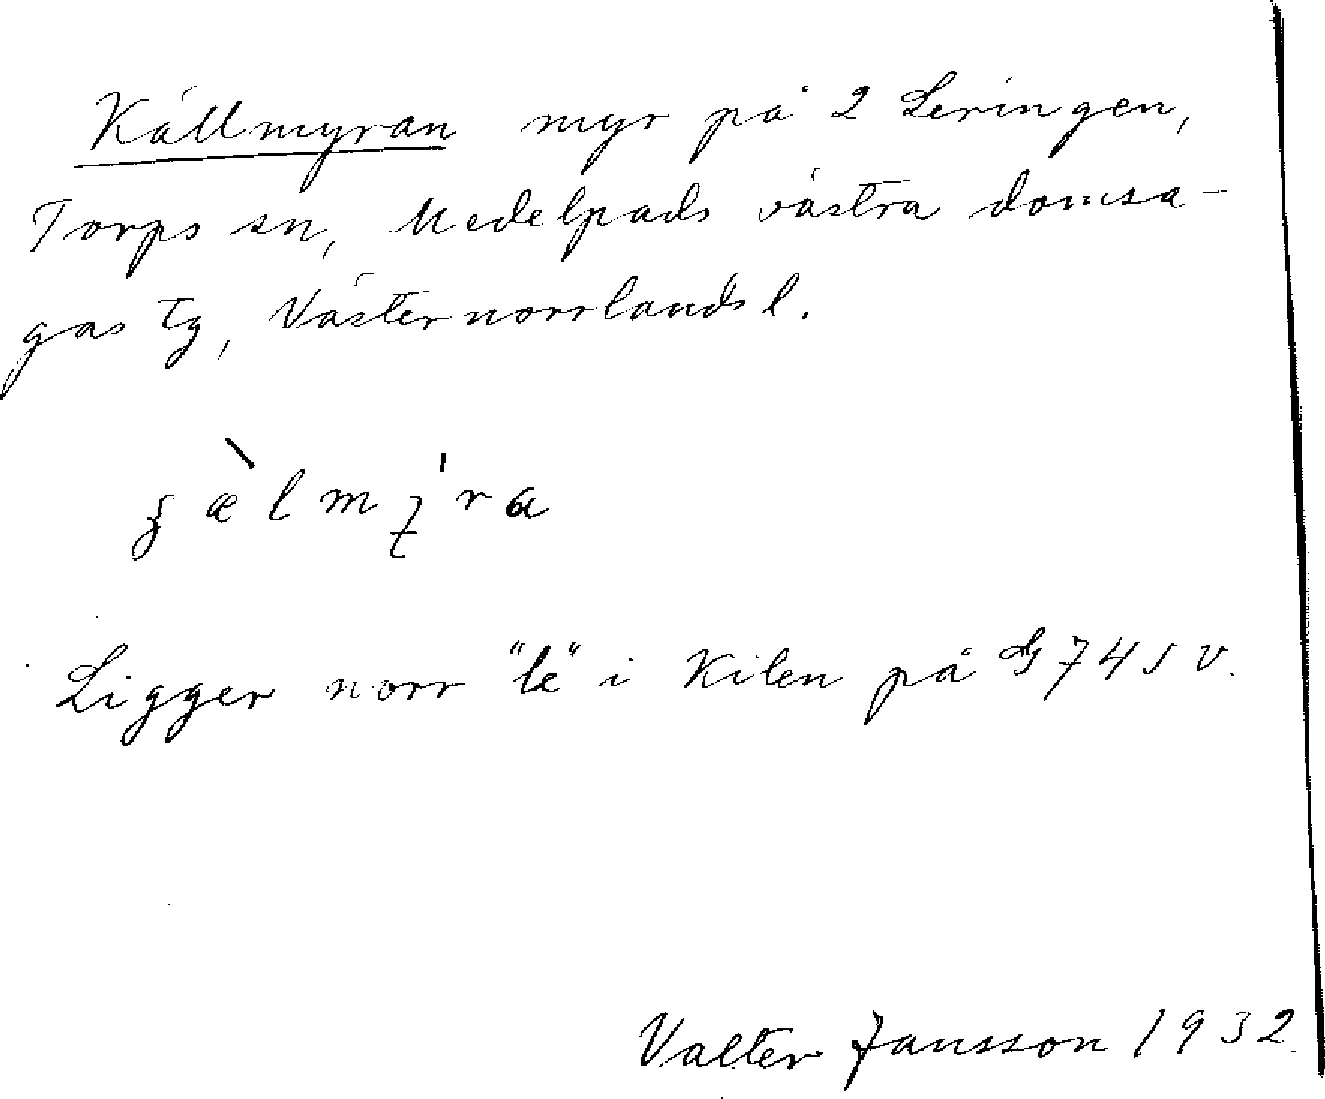 Källmyran myr på 2 Leringen,
Torps sn, Medelpads västra domsa-
gas tg, Västernorrlands l.
Ligger norr "le" i Kilen på G 745 v.
Valter Jansson 1932